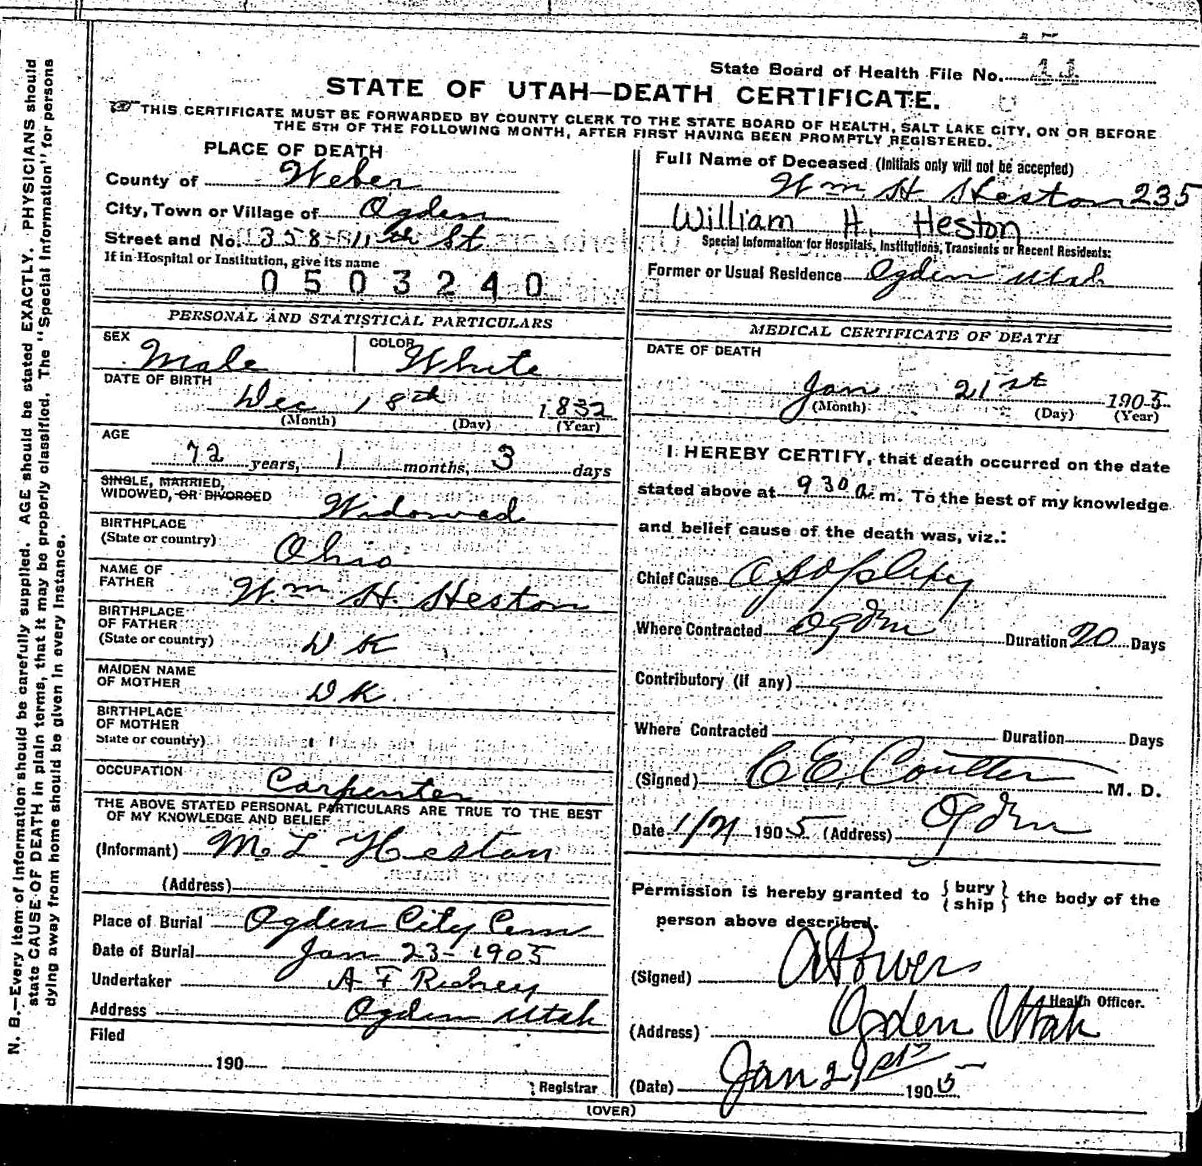 State Board of Health File No. 11
STATE OF UTAH—DEATH CERTIFICATE.
THIS CERTIFICATE MUST BE FORWARDED BY COUNTY CLERK TO THE STATE BOARD OF HEALTH, SALT LAKE CITY, ON OR BEFORE
THE 5TH OF THE FOLLOWING MONTH, AFTER FIRST HAVING BEEN PROMPTLY REGISTERED.
PLACE OF DEATH
County of Weber
City, Town or Village of Ogden
Street and No. 358-11th St
If in Hospital or Institution, give its name
0503240
PERSONAL AND STATISTICAL PARTICULARS
SEX Male COLOR White
DATE OF BIRTH
Dec 18th 1832
(Month) (Day) (Year)
AGE
72 years, 1 months, 3 days
SINGLE, MARRIED,
WIDOWED, OR DIVORCED Widowed
BIRTHPLACE
(State or country) Ohio
NAME OF
FATHER Wm H. Heston
BIRTHPLACE
OF FATHER
(State or country) D K
MAIDEN NAME
OF MOTHER D K
BIRTHPLACE
OF MOTHER
State or country) 
OCCUPATION Carpenter
THE ABOVE STATED PERSONAL PARTICULARS ARE TRUE TO THE BEST
OF MY KNOWLEDGE AND BELIEF
(Informant) M L Heston
(Address)
Place of Burial Ogden City Cem
Date of Burial Jan 23-1905
Undertaker A F
Address Ogden Utah
Filed
190
Registrar
Full Name of Deceased (Initials only will not be accepted)
Wm H. Heston 235
William H. Heston
Special Information for Hospitals, Institutions, Transients or Recent Residents:
Former or Usual Residence Ogden Utah
MEDICAL CERTIFICATE OF DEATH
DATE OF DEATH
Jan 21st 1905
(Month) (Day) (Year)
I HEREBY CERTIFY, that death occurred on the date
stated above at 930 a.m. To the best of my knowledge
and belief cause of the death was, viz.:
Chief Cause Apoplexy
Where Contracted Ogden Duration 20 Days
Contributory (if any)
Where Contracted Duration Days
(Signed) C E Coulter M. D.
Date 1/21 1905 (Address) Ogden
Permission is hereby granted to {bury
ship} the body of the
person above described.
(Signed) A Powers
Health Officer.
(Address) Ogden Utah
(Date) Jan 21st 1905
(OVER)
N. B.—Every item of information should be carefully supplied. AGE should be stated EXACTLY. PHYSICIANS should
state CAUSE OF DEATH in plain terms, that it may be properly classified. The "Special Information" for persons
dying away from home should be given in every instance.